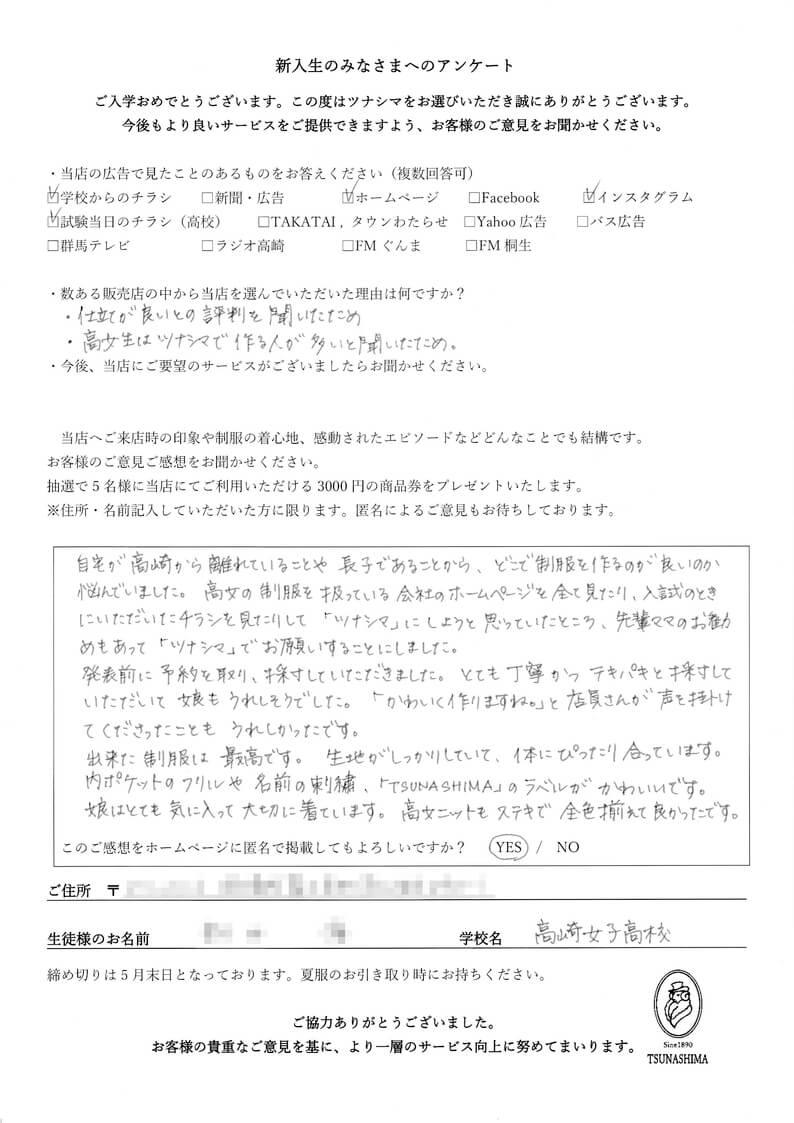 新入生のみなさまへのアンケート
ご入学おめでとうございます。この度はツナシマをお選びいただき誠にありがとうございます。
今後もより良いサービスをご提供できますよう、お客様のご意見をお聞かせください。
・当店の広告で見たことのあるものをお答えください（複数回答可）
☑学校からのチラシ □新聞・広告 ☑ホームページ □Facebook ☑インスタグラム
☑試験当日のチラシ（高校） □TAKATAI , タウンわたらせ □Yahoo 広告 □バス広告
□群馬テレビ □ラジオ高崎 □FM ぐんま □FM 桐生
・数ある販売店の中から当店を選んでいただいた理由は何ですか？
・仕立てが良いとの評判を聞いたため
・高女生はツナシマで作る人が多いと聞いたため。
・今後、当店にご要望のサービスがございましたらお聞かせください。
当店へご来店時の印象や制服の着心地、感動されたエピソードなどどんなことでも結構です。
お客様のご意見ご感想をお聞かせください。
抽選で 5 名様に当店にてご利用いただける 3000 円の商品券をプレゼントいたします。
※住所・名前記入していただいた方に限ります。匿名によるご意見もお待ちしております。
自宅が高崎から離れていることや長子であることから、どこで制服を作るのが良いのか
悩んでいました。高女の制服を扱っている会社のホームページを全て見たり、入試のとき
にいただいたチラシを見たりして「ツナシマ」にしようと思っていたところ、先輩ママのお勧
めもあって「ツナシマ」でお願いすることにしました。
発表前に予約を取り、採寸していただきました。とても丁寧かつテキパキと採寸して
いただいて娘もうれしそうでした。「かわいく作りますね。」と店員さんが声を掛け
てくださったこともうれしかったです。
出来た制服は最高です。生地がしっかりしていて、体にぴったり合っています。
内ポケットのフリルや名前の刺繍、「TSUNASHIMA」のラベルがかわいいです。
娘はとても気に入って大切に着ています。高女ニットもステキで全色揃えて良かったです。
このご感想をホームページに匿名で掲載してもよろしいですか？ YES / NO
ご住所 〒
生徒様のお名前 学校名 高崎女子高校
締め切りは 5 月末日となっております。夏服のお引き取り時にお持ちください。
ご協力ありがとうございました。
お客様の貴重なご意見を基に、より一層のサービス向上に努めてまいります。
Sine1890
TSUNASHIMA